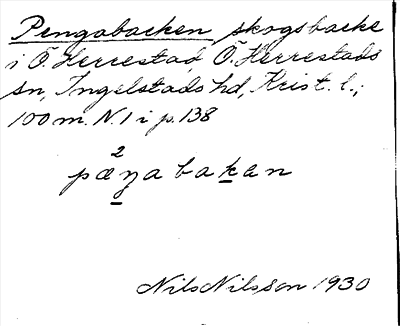 Pengabacken skogsbacke
i Ö. Herrestad, Ö. Herrestads
sn, Ingelstads hd, Krist. l.;
100 m. N. 1 i p. 138
2
pæŋabakan
Nils Nilsson 1930